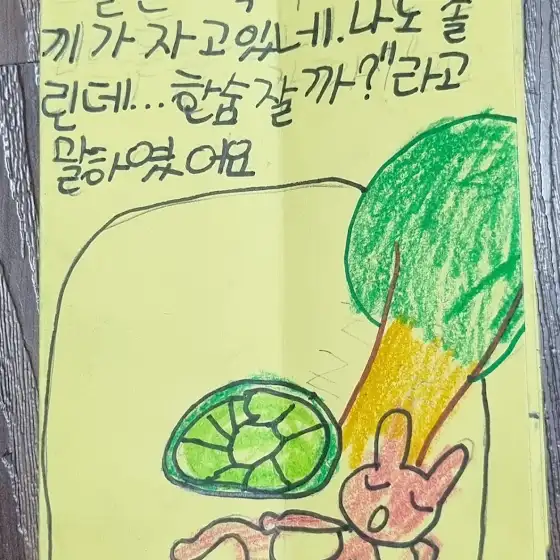 끼가 자고있네.나도 졸
린데...한숨잘까?"라고
말하였어요